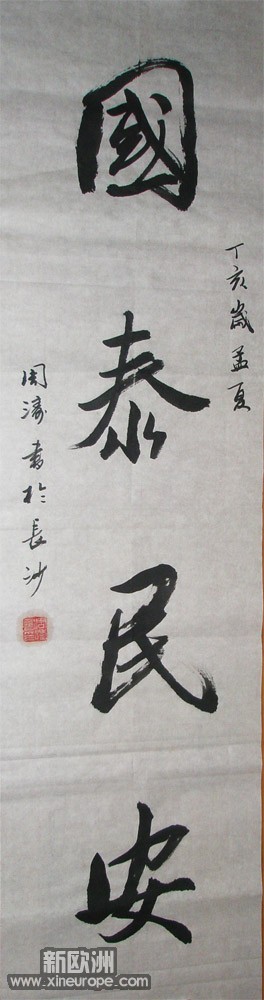 丁亥歲孟夏
國泰民安
周濤書於長沙
新欧洲
www.xineurope.com